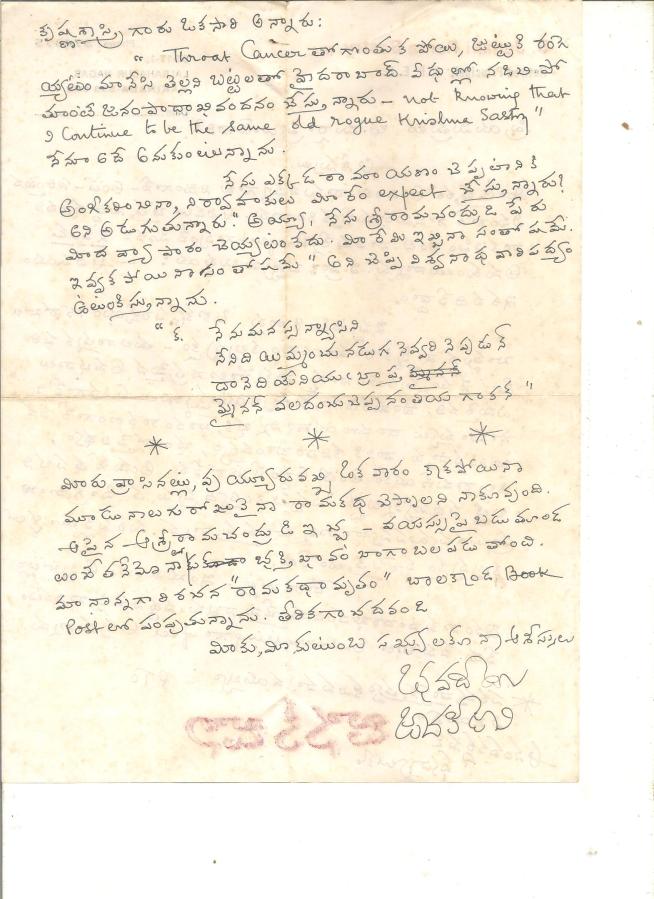 కృష్ణశాస్త్రి గారు ఒకసారి అన్నారు:
"Throat Cancer తో గొంతుక పోయి, జుట్టుకి రంగె
య్యటం మానేసి తెల్లని బట్టలతో హైదరాబాద్ వీధుల్లో నడిచి పో
తూంటే జనం పాదాభివందనం చేస్తున్నారు – not knowing that
I continue to be the same old rogue Krishna Sastry"
నేనూ అదే అనుకుంటున్నాను.
నేను ఎక్కడ రామాయణం చెప్పటానికి
అంగీకరించినా, నిర్వాహకులు మీరేం expect చేస్తున్నారు?
అని అడుగుతున్నారు. "అయ్యా, నేను శ్రీరామచంద్రుడి పేరు
మీద వ్యాపారం చెయ్యటంలేదు. మీరేమి ఇచ్చినా సంతోషమే.
ఇవ్వక పోయినా సంతోషమే" అని చెప్పి విశ్వనాథ వారి పద్యం
ఉటంకిస్తున్నాను.
"క. నేను మనస్సన్న్యాసిని
నేనిది యిమ్మంచు నడుగ నెవ్వరి నెపుడున్
దానెదియేనియుఁ బ్రాప్త
మ్మైనన్ వలదంచు చెప్పనంతియ గాకన్"
* * *
మీరు వ్రాసినట్లు, వుయ్యూరు వచ్చి ఒక వారం కాకపోయినా
మూడు నాలుగు రోజులైనా రామకథ చెప్పాలని నాకూ వుంది.
ఆపైన – ఆ శ్రీరామచంద్రుడి ఇచ్ఛ – వయస్సు పై బడుతూండ
టంచేతనేమో నాక్కూడా భక్తి భావం బాగా బలపడుతోంది.
మా నాన్నగారి రచన "రామకథామృతం" బాలకాండ Book
Post లో పంపుతున్నాను. తీరికగా చదవండి
మీకు, మీ కుటుంబ సభ్యులకూ నా ఆశీస్సులు
భవదీయ
జానకిజాని